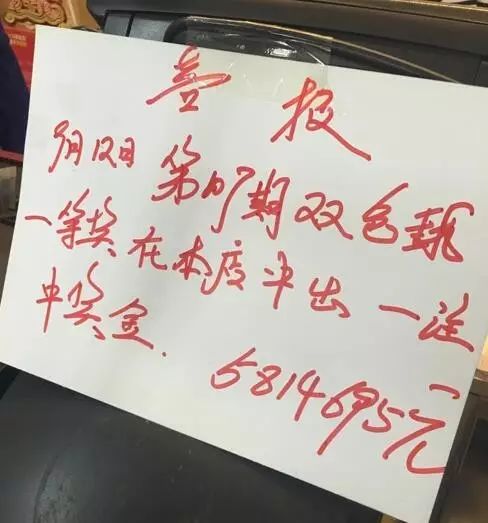 喜报
月12日 第107期双色球
一等奖在本店中出一注
中奖金. 5814695元